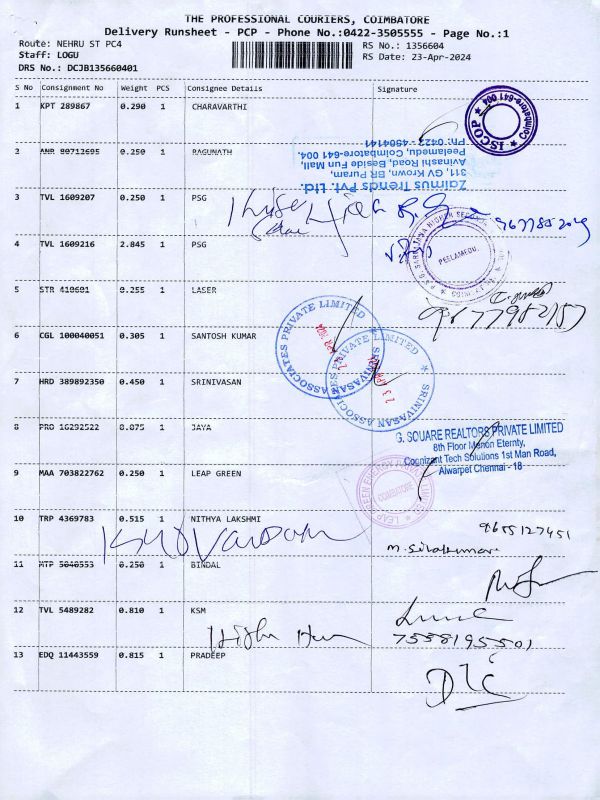 THE PROFESSIONAL COURIERS, COIMBATORE
Delivery Runsheet - PCP - Phone No.:0422-3505555 - Page No.:1
Route: NEHRU ST PC4
Staff: LOGU
DRS No.: DCJB135660401
RS No.: 1356604
RS Date: 23-Apr-2024
S No Consignment No Weight PCS Consignee Details Signature
1 KPT 289867 0.290 1 CHARAVARTHI
ISCOP ★ Coimbatore-641 004 ★
2 ANR 80712695 0.250 1 RAGUNATH
Zaimus Trends Pvt. Ltd.
311, GV Krown, BR Puram,
Avinashi Road, Beside Fun Mall,
Peelamedu, Coimbatore-641 004.
PH: 0422 - 4504141
3 TVL 1609207 0.250 1 PSG
4 TVL 1609216 2.845 1 PSG
PEELAMEDU
5 STR 410601 0.255 1 LASER
6 CGL 100040051 0.305 1 SANTOSH KUMAR
SRINIVASAN ASSOCIATES PRIVATE LIMITED
SRINIVASAN ASSOCIATES PRIVATE LIMITED
7 HRD 389892350 0.450 1 SRINIVASAN
8 PRO 16292522 0.075 1 JAYA
G. SQUARE REALTORS PRIVATE LIMITED
8th Floor Menon Eternty,
Cognizant Tech Solutions 1st Man Road,
Alwarpet Chennai - 18
9 MAA 703822762 0.250 1 LEAP GREEN
COIMBATORE
10 TRP 4369783 0.515 1 NITHYA LAKSHMI
9655127451
11 MTP 5040553 0.250 1 BINDAL
12 TVL 5489282 0.810 1 KSM
7558195501
13 EDQ 11443559 0.815 1 PRADEEP